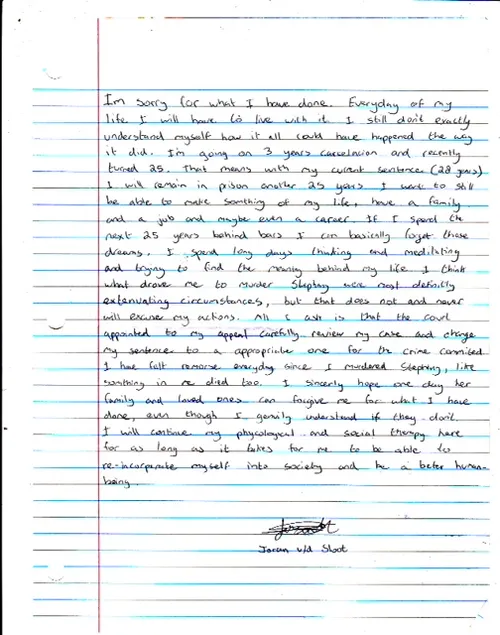 Im sorry for what I have done. Everyday of my
life I will have to live with it. I still don't exactly
understand myself how it all could have happened the way
it did. I'm going on 3 years carcelacion and recently
turned 25. That means with my current sentence (28 years)
I will remain in prison another 25 years. I want to still
be able to make somthing of my life, have a family
and a job and maybe even a career. If I spend the
next 25 years behind bars I can basically forget those
dreams. I spend long days thinking and meditating
and trying to find the meaning behind my life. I think
what drove me to murder Stephany were most definitly
extenuating circumstances, but that does not and never
will excuse my actions. All I ask is that the court
appointed to my appeal carefully review my case and change
my sentence to a appropriate one for the crime commited
I have felt remorse everyday since I murdered Stephany, like
somthing in me died too. I sincerly hope one day her
family and loved ones can forgive me for what I have
done, even though I genuily understand if they don't.
I will continue my phycological and social therapy here
for as long as it takes for me to be able to
re-incorporate myself into society and be a beter human-
being.
Joran v/d Sloot